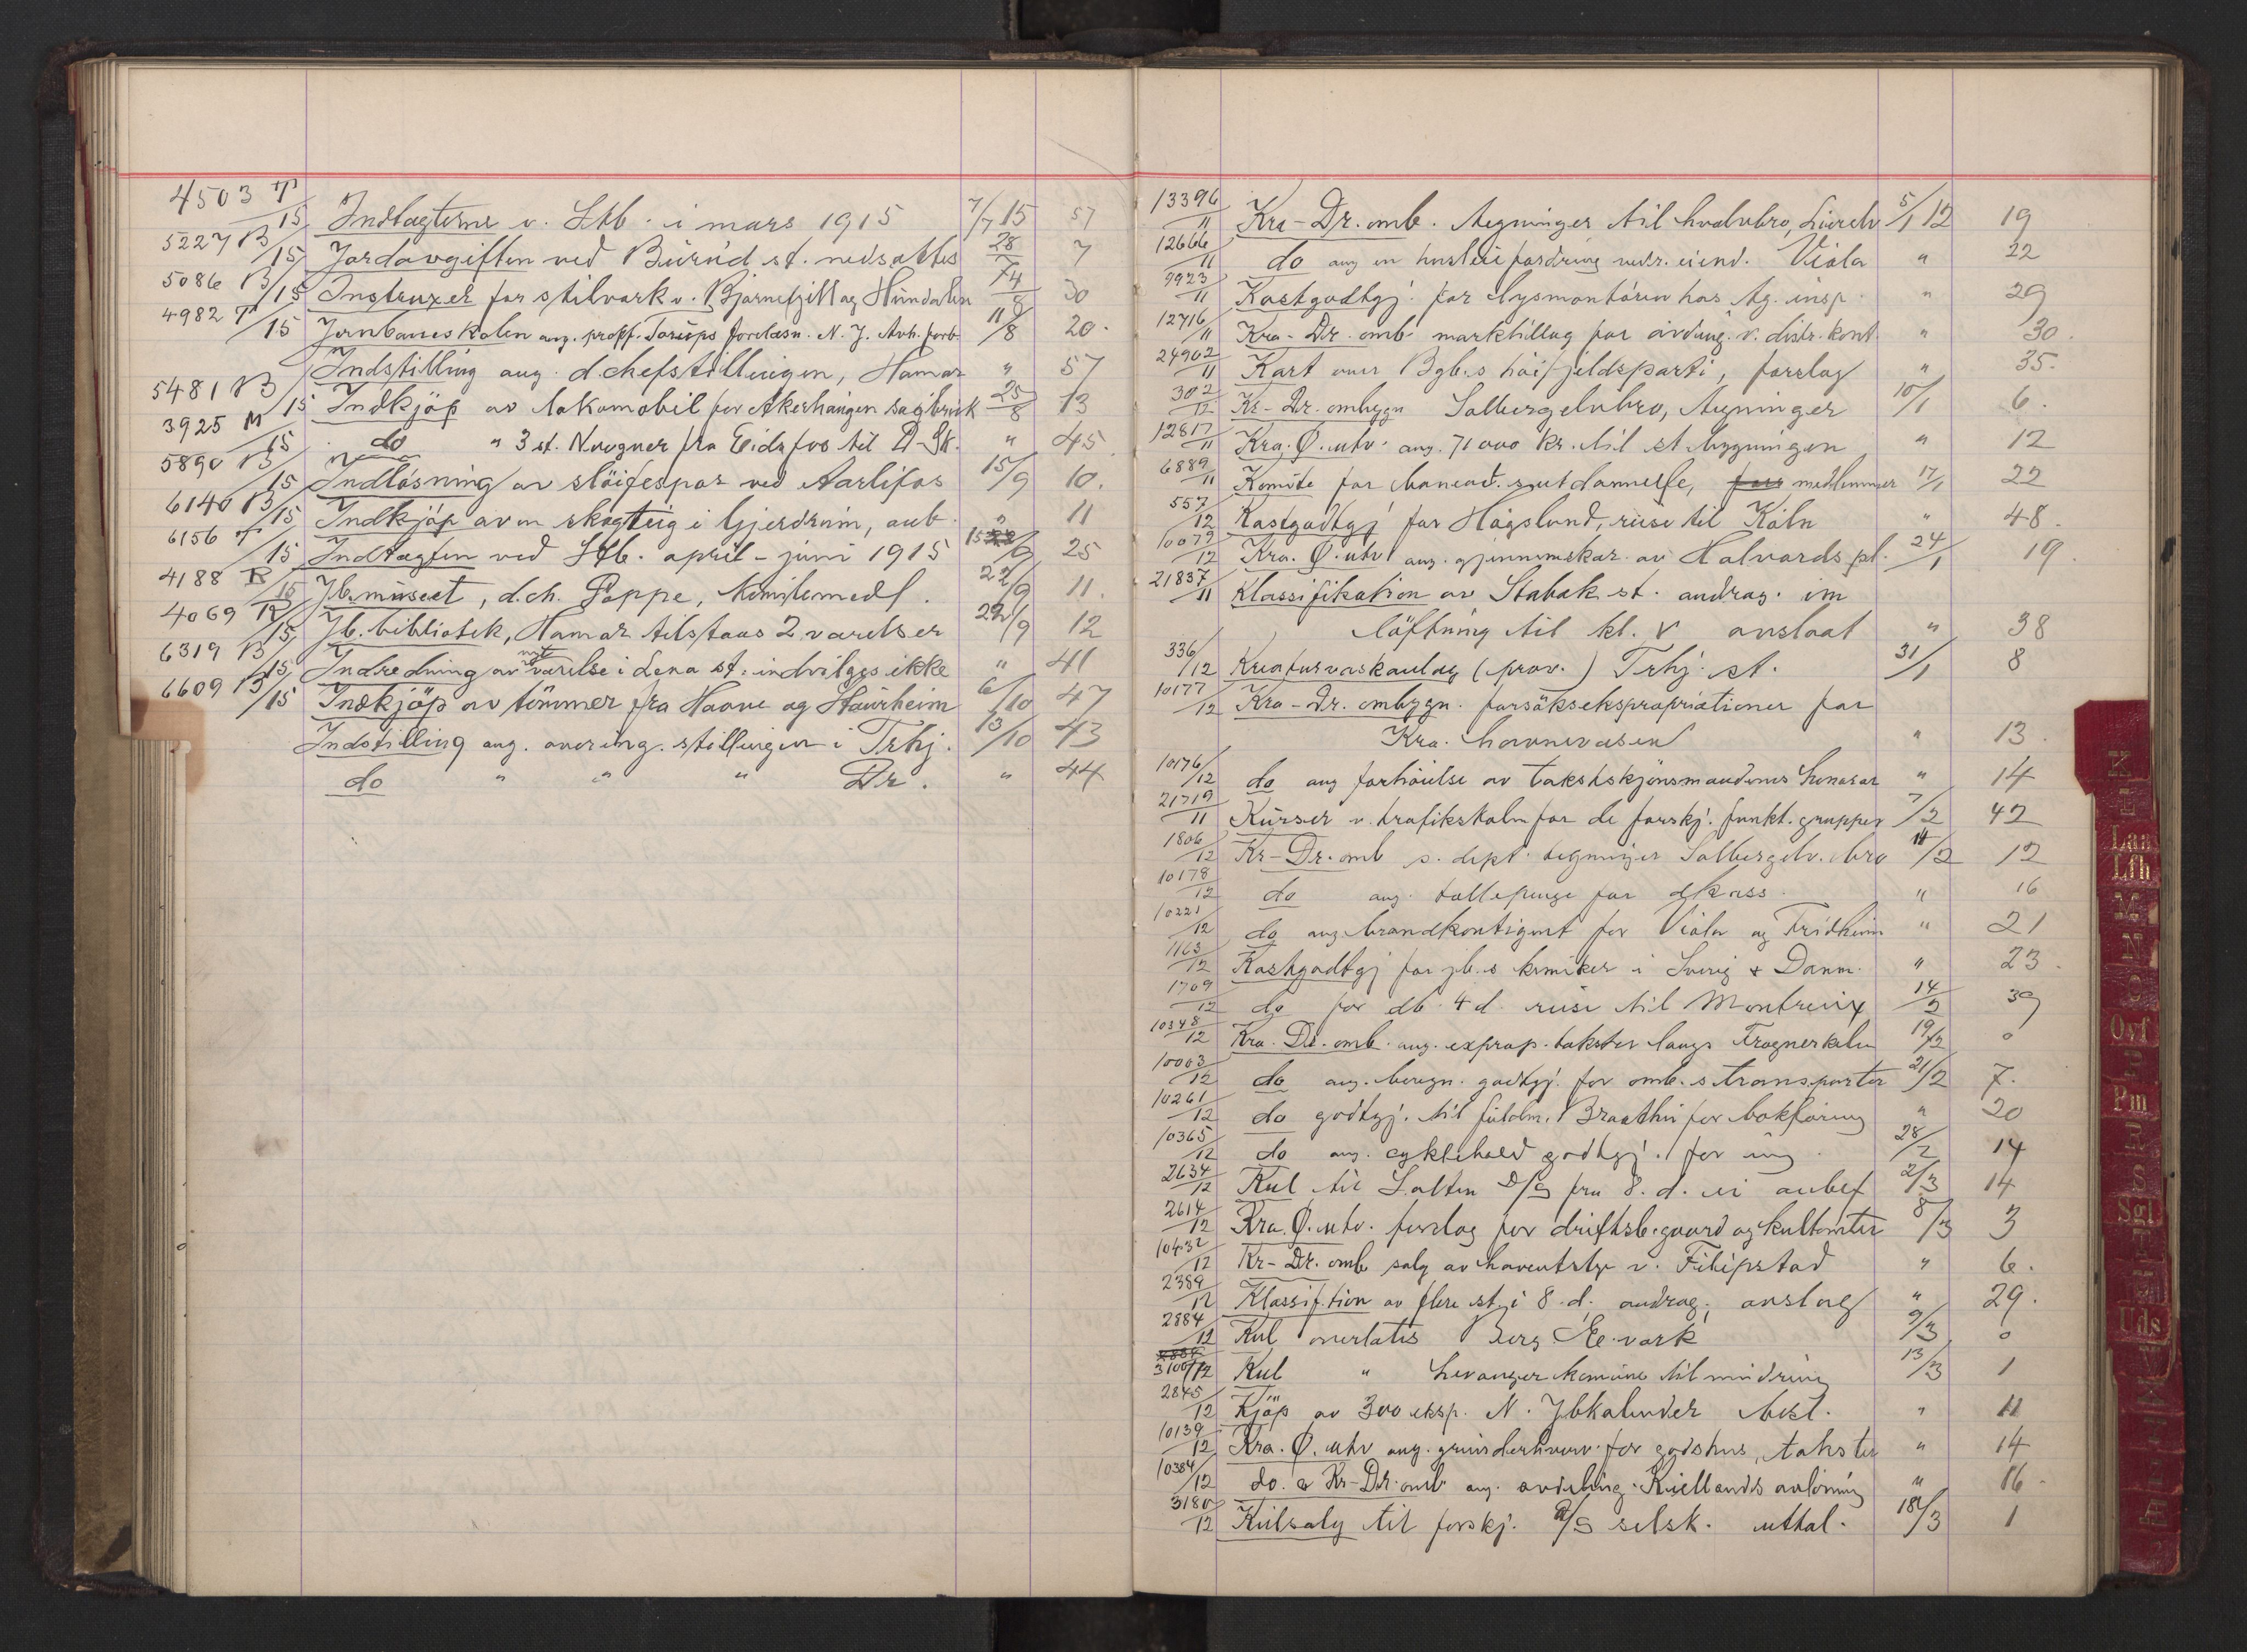 4503 T/15 Indtægterne v. Stb. i mars 1915 7/7 15 57
5227 B/15 Jordavgiften ved Burud st. nedsættes 28/7 7
5086 B/15 Instruxer for stilverk v. Bjørnefjell og Hundalen 74/8 30
4982 T/15 Jernbaneskolen ang. proff. Torups forelæsn. N. J. Avh. forb. 11/8 20.
Indstilling ang. dchefstillingen, Hamar " 57
5481 B/15 Indkjöp av lokomobil for Akershaugen sagbruk 25/8 13
3925 M/15 do " 3 st. Nvogner fra Eidsfos til D-Sk. " 45
5890 B/15 Indløsning av sløifespor ved Aarlifos 15/9 10.
6140 B/15 Indkjøp av en skogteig i Gjerdrum, anb. " 11
6156 T/15 Indtægten ved Stb. april - juni 1915 15/9 25
4188 R/15 Jb.museet, d.ch. Poppe, komitemedl. 22/9 11.
4069 R/15 Jb. bibliotek, Hamar tilstaaes 2 værelser 22/9 12
6319 B/15 Indredning av nyt værelse i Lena st. indvilges ikke " 41
6609 B/15 Indkjöp av tömmer fra Haave og Staurheim 6/10 47
Indstilling ang. avering. stillingen i Trhj. 13/10 43
do " " " Dr. " 44
13396/11 Kra-Dr. omb. tegninger til hvalvbro, Lierelv 5/1 12 19
12666/11 do ang en husleiefordring vedr. eiend. Viola " 22
9923/11 Kostgodtgj. for lysmontören hos tg. insp. " 29
12716/11 Kra-Dr. omb. marktillæg for avding. v. distr. kont. " 30.
24902/11 Kart over Bgb.s höifjeldsparti, forslag " 35.
302/12 Kr-Dr. ombygn Solbergelvbro, tegninger 10/1 6.
12817/11 Kra. Ø. utv. ang. 71000 kr. til st. bygningen " 12
6889/11 Komite for baneavd.s utdannelse, medlemmer 17/1 22
557/12 Kostgodtgj for Högslund, reise til Köln " 48.
10079/12 Kra. Ø. utv ang. gjennemskjær. av Halvards pl. 24/1 19.
21837/11 Klassifikation av Stabæk st. andrag. om
löftning til kl. V avslaat " 38
336/12 Kreaturvaskanlæg (prov.) Trhj. st. 31/1 8
10177/12 Kra-Dr. ombygn. forsöksekspropriationer for
Kra. havnevæsen " 13.
10176/12 do ang forhöielse av takstskjönsmændenes honorar " 14
21719/11 Kurser v. trafikskolen for de forskj. funkt. grupper 7/2 42
1806/12 Kr-Dr. omb s. dept. tegninger Solbergelv. bro 14/2 12
10178/12 do ang. tællepenge for dkass. " 16
10221/12 do ang brandkontigent for Viola og Fridheim " 21
1163/12 Kostgodtgj for jb.s kemiker i Sverig & Danm. " 23.
1709/12 do for db. 4 d. reise til Montreux 14/2 39
10348/12 Kra. Dr. omb. ang. exprop. takster langs Frognerkilen 19/2 0
10003/12 do ang. beregn. godtgj. for omb.s transporter 21/2 7.
10261/12 do godtgj. til fuldm. Braathe for bokföring " 20
10365/12 do ang. cyklehold godtgj. for ing. 28/2 14
2634/12 Kul til Salten D/S fra 8. d. ei anbef 2/3 14
2614/12 Kra. Ø. utv. forslag for driftsb.gaard og kultomter 8/3 3
10432/12 Kr-Dr. omb salg av haveutstyr v. Filipstad " 6.
2389/12 Klassif.tion av flere st. i 8. d. andrag. avslag " 29.
2884/12 Kul overlates Berg El. værk 9/3 0
3100/12 Kul " Levanger komune til nødring 13/3 1
2845/12 Kjöp av 300 eksp. N. Jbkalender best. " 11
10139/12 Kra. Ø. utv ang. grunderhverv. for godshus, takster " 14
10384/12 do. & Kr-Dr. omb ang. avdeling. Kiellands avlöning " 16.
3180/12 Kulsalg til forskj. D/S selsk. uttal. 18/3 1
K
E
Laa
Lfh
M
N
O
Ovf
P
Pm
R
S
Sgl
T
Uds